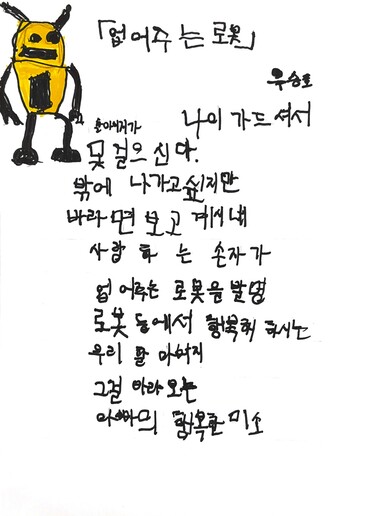 「업어주는 로봇」
우승호
나이 가드셔서
할아버지가
못 걸으신다.
밖에 나가고 싶지만
바라면 보고 계시네
사랑하는 손자가
업어주는 로봇을 발명
로봇 등에서 행복해 하시는
우리 할아버지
그걸 바라보는
아빠의 행복한 미소